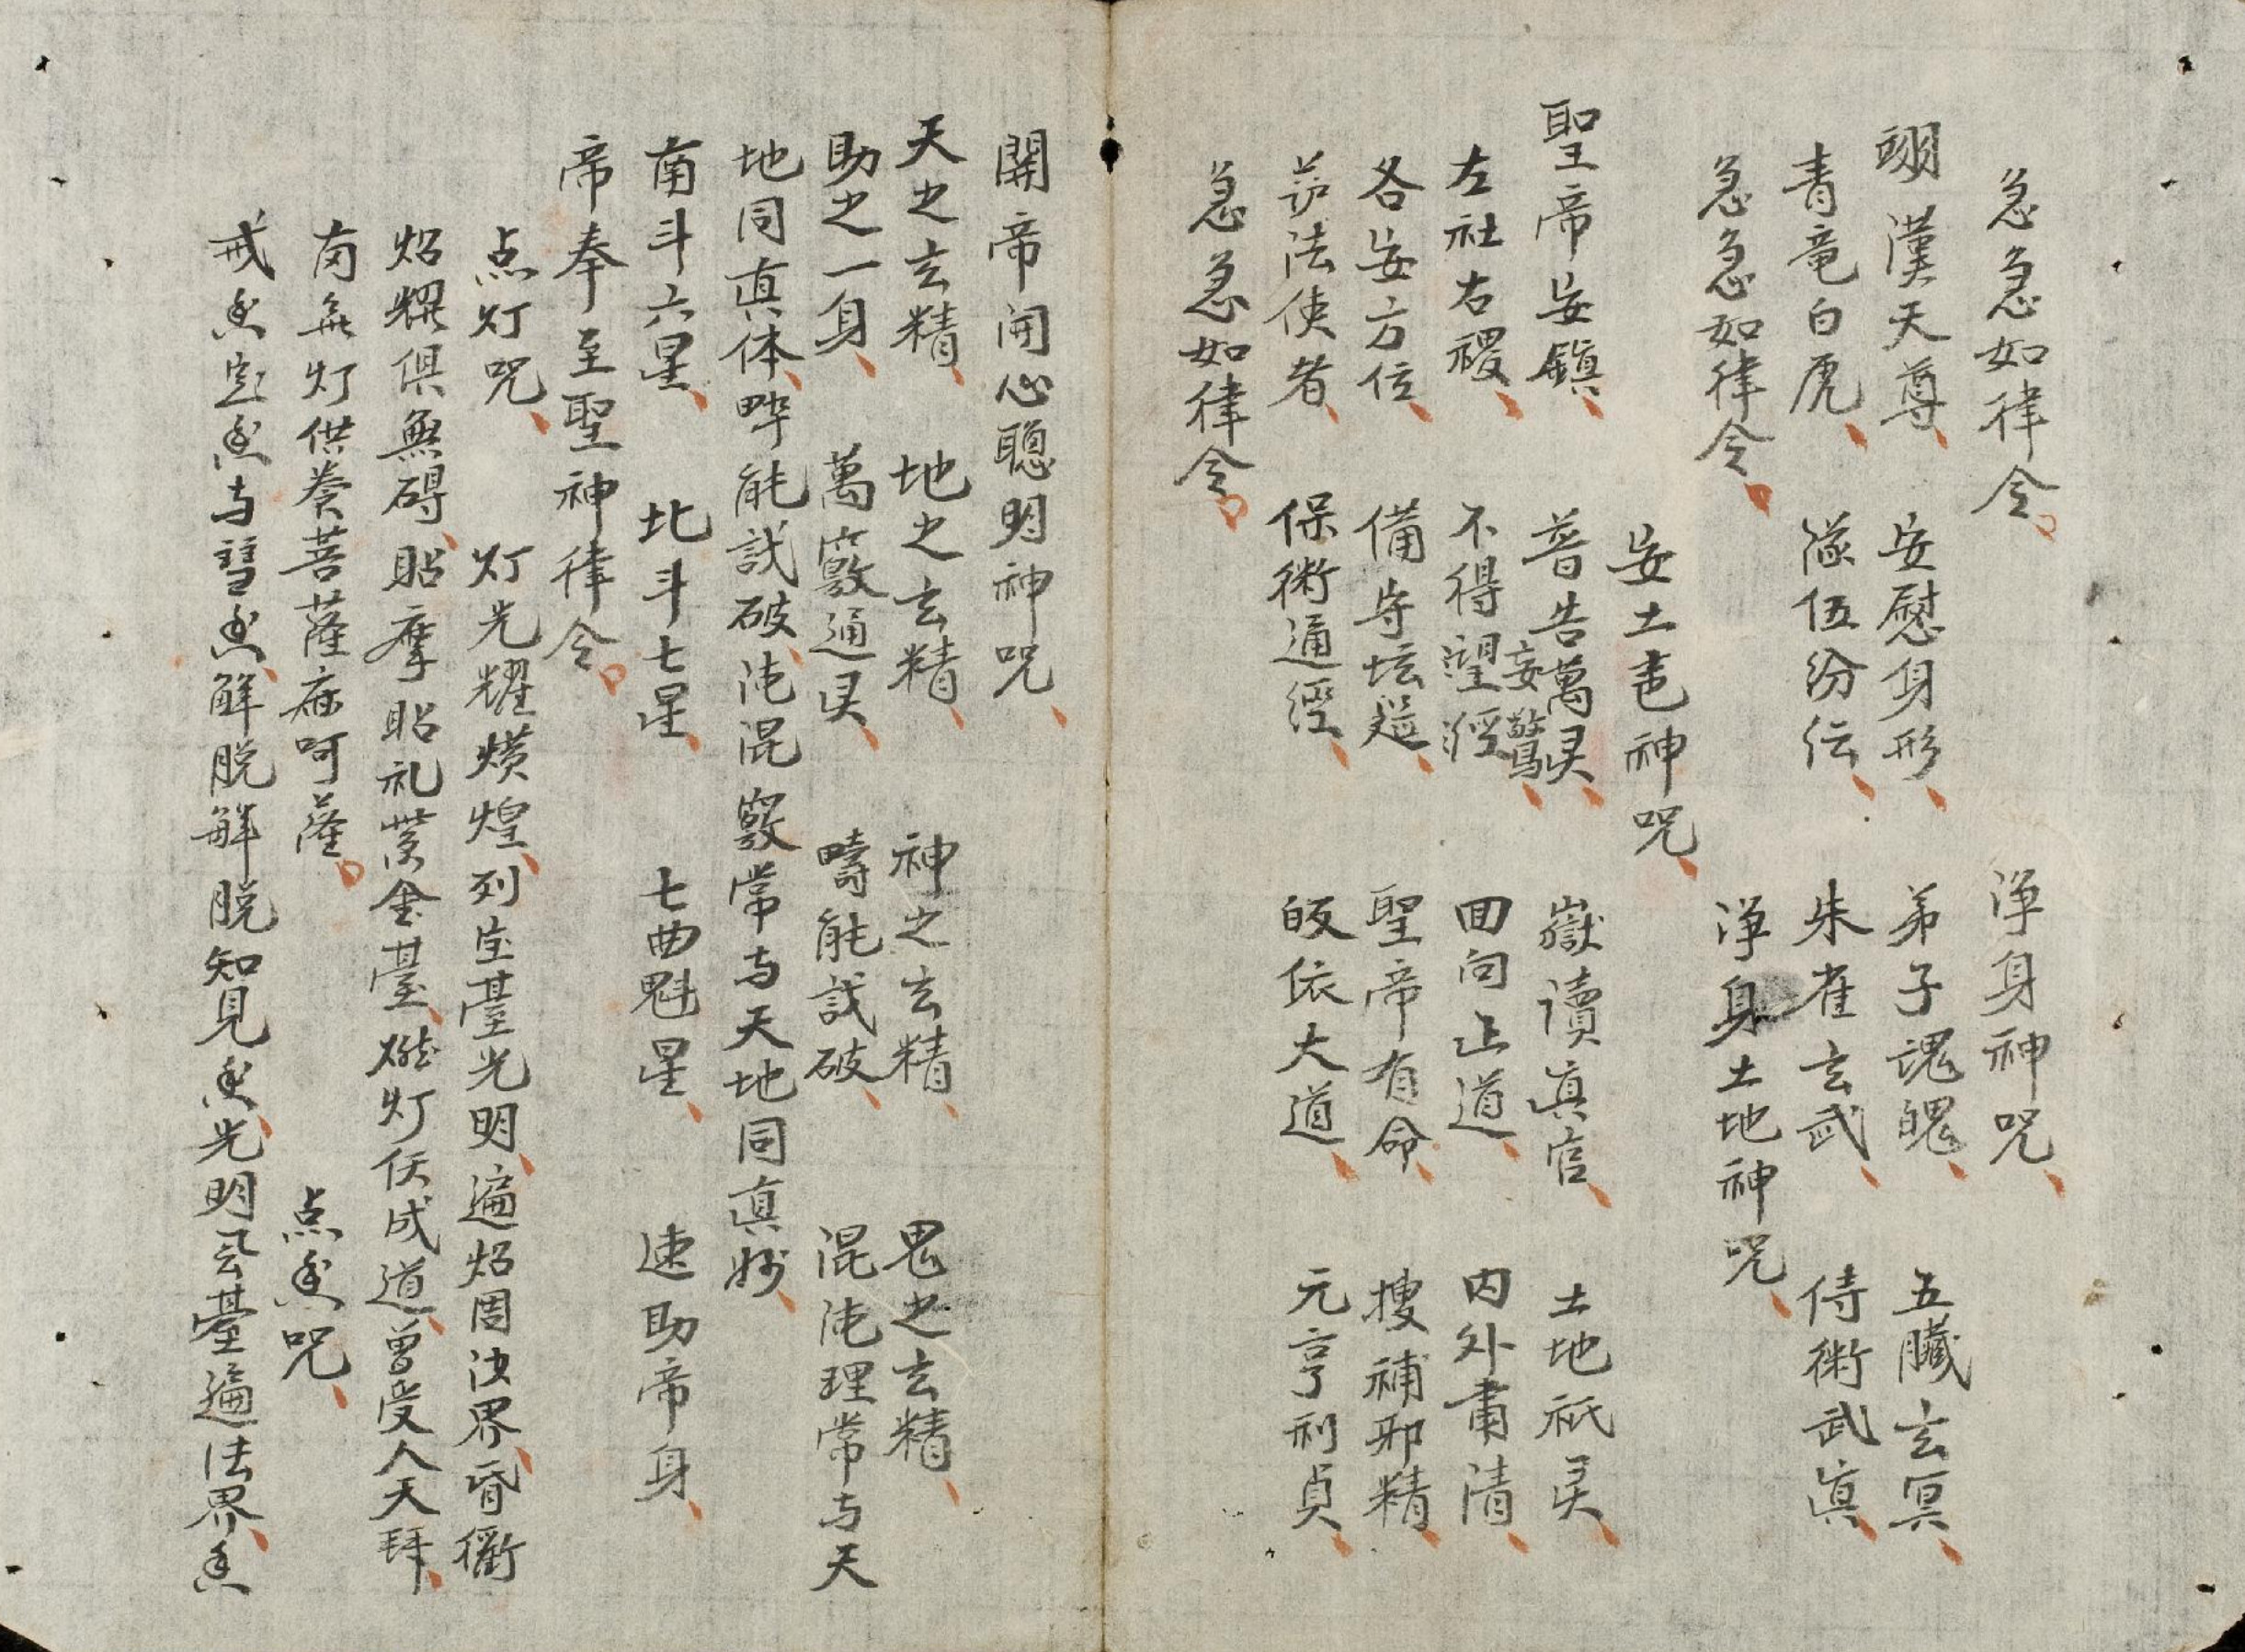 急急如律令 淨身神咒
翊漢天尊 安慰身形 弟子魂魄 五臟玄冥
青竜白虎 隊伍汾伝 朱雀玄武 侍衛武真
急急如律令 淨身土地神咒
安土皀神咒
聖帝安鎮 普告萬灵 嶽讀真官 土地祇灵
左社右禝 不得望徑 妄驚 囬向正道 內外肅清
各安方位 備守坛莚 聖帝有命 搜補邪精
茆法使者 保術通經 皈依大道 元亨利貞
急急如律令
開帝開心聰明神咒
天之玄精 地之玄精 神之玄精 鬼之玄精
助之一身 萬竅通灵 疇能試破 混沌理常与天
地同真体 能試破 沌混竅常与天地同真妙
南斗六星 北斗七星 七曲魁星 速助帝身
帝奉至聖神律令
点灯咒 灯光耀熿煌 列宝臺光明 遍炤周決界 昏衢
炤耀俱無碍 貼摩貼礼紫金臺 燃灯仸成道 曽受人天拜
南無灯供養菩薩麻呵薩 点香咒
戒香定香与慧香 解脱解脱知見香 光明云臺遍法界 香